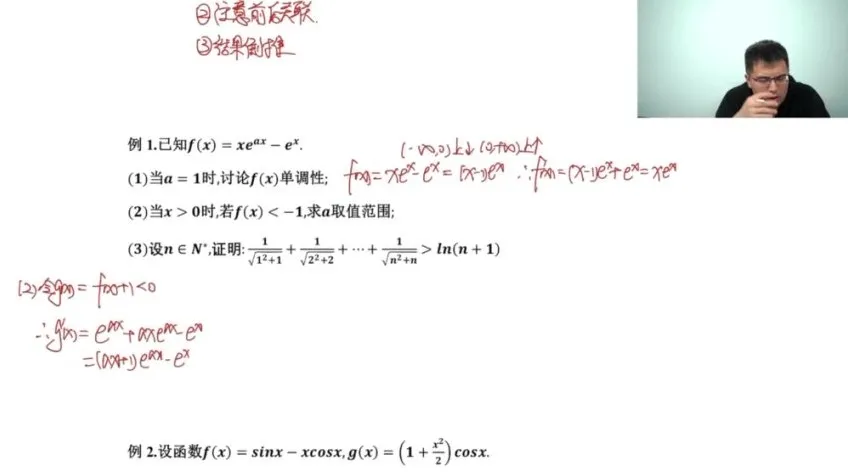 ②注意前后关联.
③结果倒推
例 1.已知f(x) = xe^{ax} − e^x.
(-∞,0)上↓ (0,+∞)上↑
(1)当a = 1时,讨论f(x)单调性; f(x)=xe^x-e^x=(x-1)e^x ∴f'(x)=(x-1)e^x+e^x=xe^x
(2)当x > 0时,若f(x) < −1,求a取值范围;
(3)设n ∈ N*,证明: 1/√(1²+1) + 1/√(2²+2) + ⋯ + 1/√(n²+n) > ln(n + 1)
(2)令g(x)= f(x)+1<0
∴g'(x)= e^{ax}+axe^{ax}-e^x
=(ax+1)e^{ax}-e^x
例 2.设函数f(x) = sinx − xcosx, g(x) = (1 + x²/2)cosx.